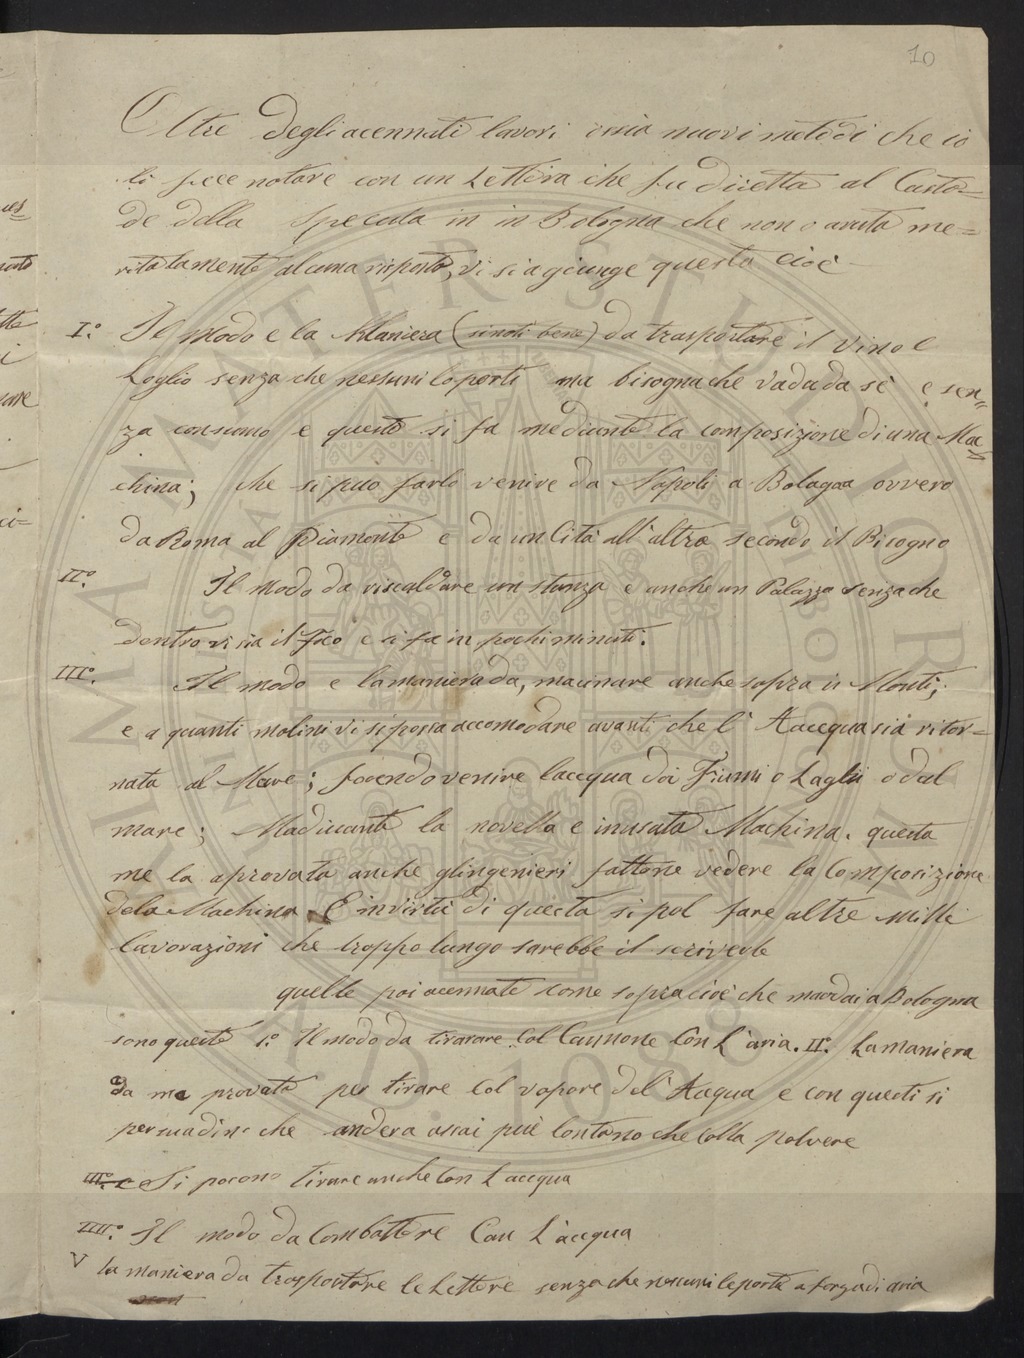 10
Oltre degli acennati lavori ossia nuovi metodi che io
li fece notare con un Lettera che fu diretta al Custo=
de della Specula in in Bologna che non o avuta me=
ritatamente alcuna risposta, vi si agiunge questo cioè
I.° Il Modo e la Maniera (si noti bene) da trasportare il Vino e
Loglio senza che nessuni lo porti ma bisogna che Vada da sè e sen=
za consumo e questo si fa mediante la composizione di una Mac=
china; che si può farlo venire da Napoli a Bologna ovvero
da Roma al Piamonte e da un Cità all'altra secondo il Bisogno
II.° Il Modo da riscaldare un stanza e anche un Palazzo senza che
dentro vi sia il Foco e si fa in pochi minuti.
III.° Il modo e la maniera da, macinare anche sopra i Monti;
e a quanti molini vi si possa accomodare avanti che l'Aacequa sia ritor=
nata al Mare; facendo venire lacequa dai Fiumi o Laghi o dal
mare; Madiuante la novella e inusata Machina. questa
me la aprovata anche glingenieri fattone vedere la Composizione
dela Machina. E in virtù di questa si pol fare altre mille
Lavorazioni che troppo lungo sarebbe il scriverle
quelle poi acennate come sopra cioè che mandai a Bologna
sono queste 1.° Il modo da tirarare Col Cannone Con L'aria. II.° La maniera
da me provata per tirare Col vapore del'Aacqua e con questi si
persuadino che andera assai più lontano che colla polvere
III.° e Si pocono tirare anche Con L acequa
IIII.° Il modo da Combattere Can L'acequa
V la maniera da trasportare le Lettere senza che nessuni le porta a forza di aria